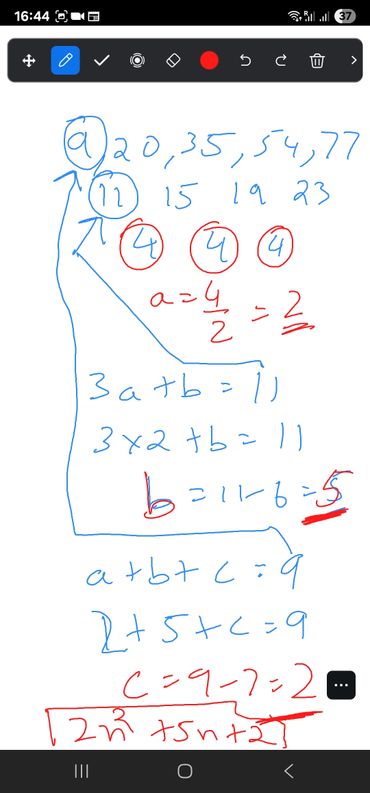 16:44 37
9, 20, 35, 54, 77
11 15 19 23
4 4 4
a = 4/2 = 2
3a + b = 11
3 × 2 + b = 11
b = 11 - 6 = 5
a + b + c = 9
2 + 5 + c = 9
c = 9 - 7 = 2
2n² + 5n + 2